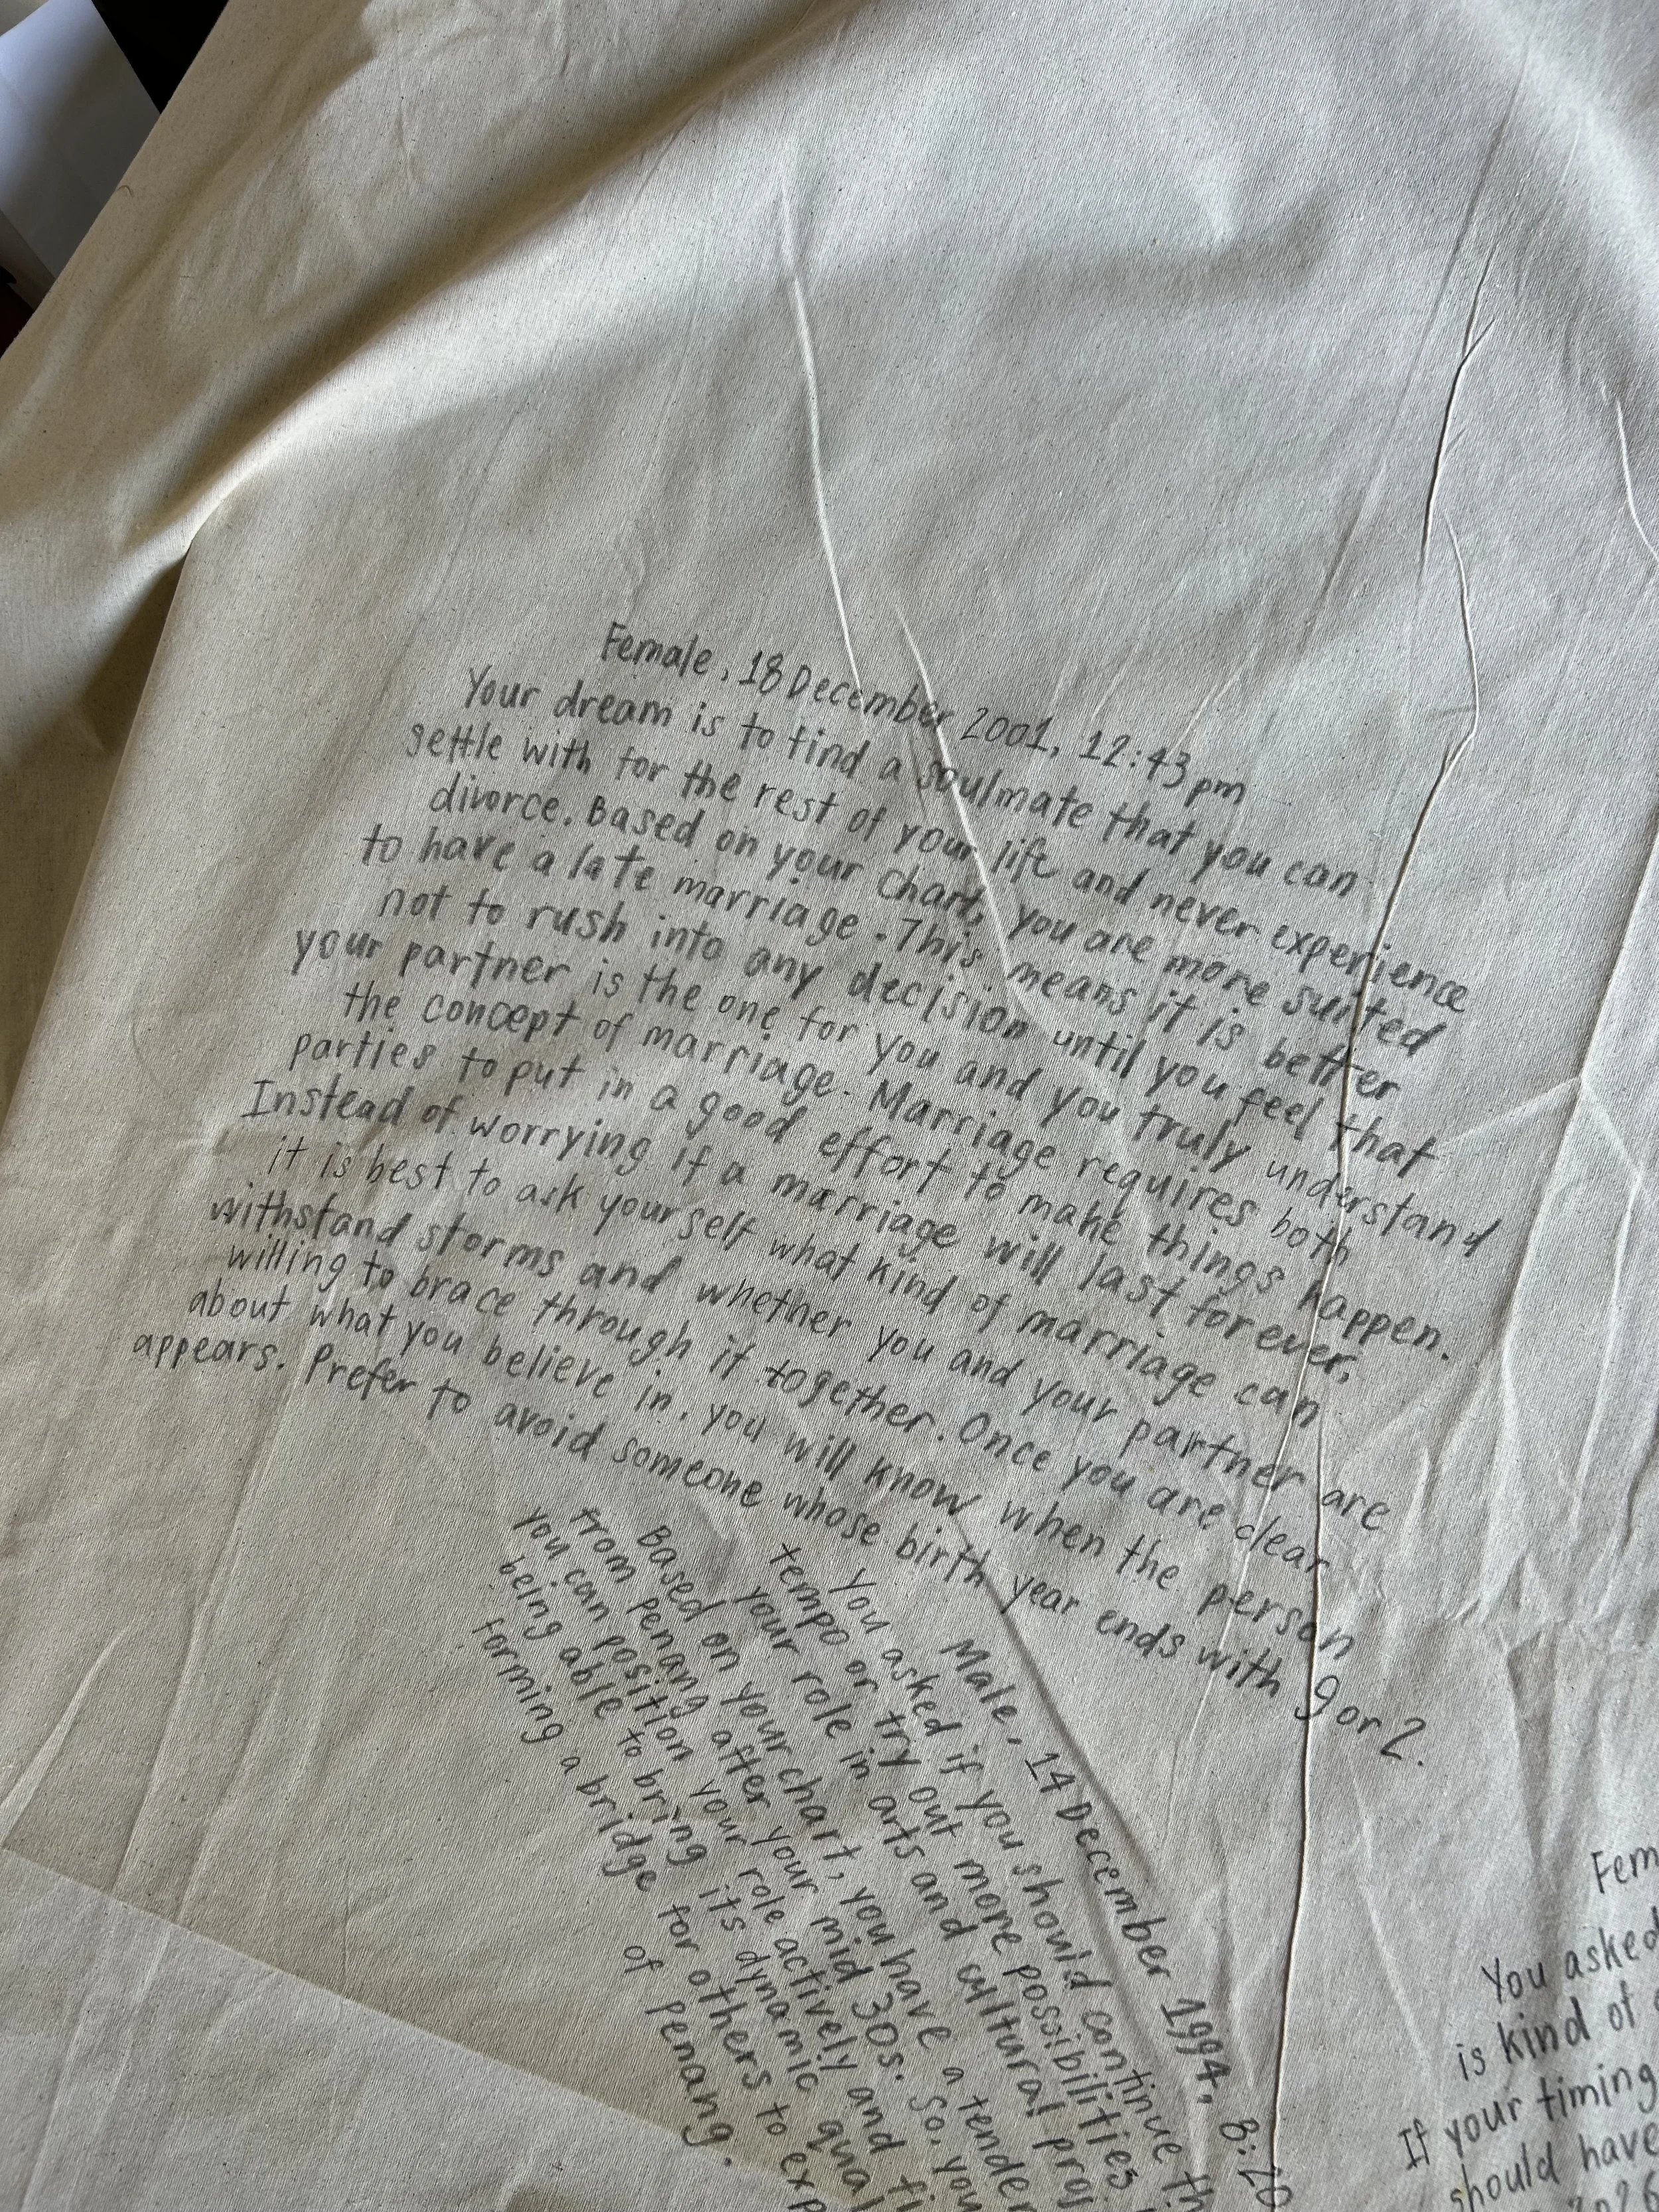 Female, 18 December 2001, 12:43 pm
Your dream is to find a soulmate that you can
settle with for the rest of your life and never experience
divorce. Based on your chart, you are more suited
to have a late marriage. This means it is better
not to rush into any decision until you feel that
your partner is the one for you and you truly understand
the concept of marriage. Marriage requires both
parties to put in a good effort to make things happen.
Instead of worrying if a marriage will last forever,
it is best to ask yourself what kind of marriage can
withstand storms and whether you and your partner are
willing to brace through it together. Once you are clear
about what you believe in, you will know when the person
appears. Prefer to avoid someone whose birth year ends with 9 or 2.
Male, 14 December 1994,
You asked if you should continue
tempo or try out more possibilities
your role in arts and cultural
Based on your chart, you have a
from penang after your mid 30s. So, you
you can position your role actively and
being able to bring its dynamic
forming a bridge for others to
of penang.
You asked
is kind of
If your timing
should have